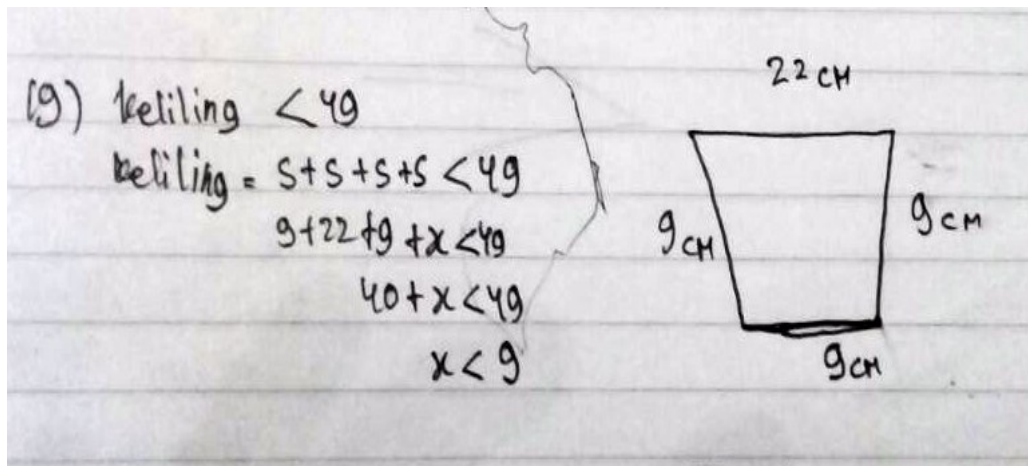 19) keliling < 49
keliling = s+s+s+s < 49
9+22+9+x<49
40+x<49
x < 9
22 cm
9 cm
9 cm
9 cm